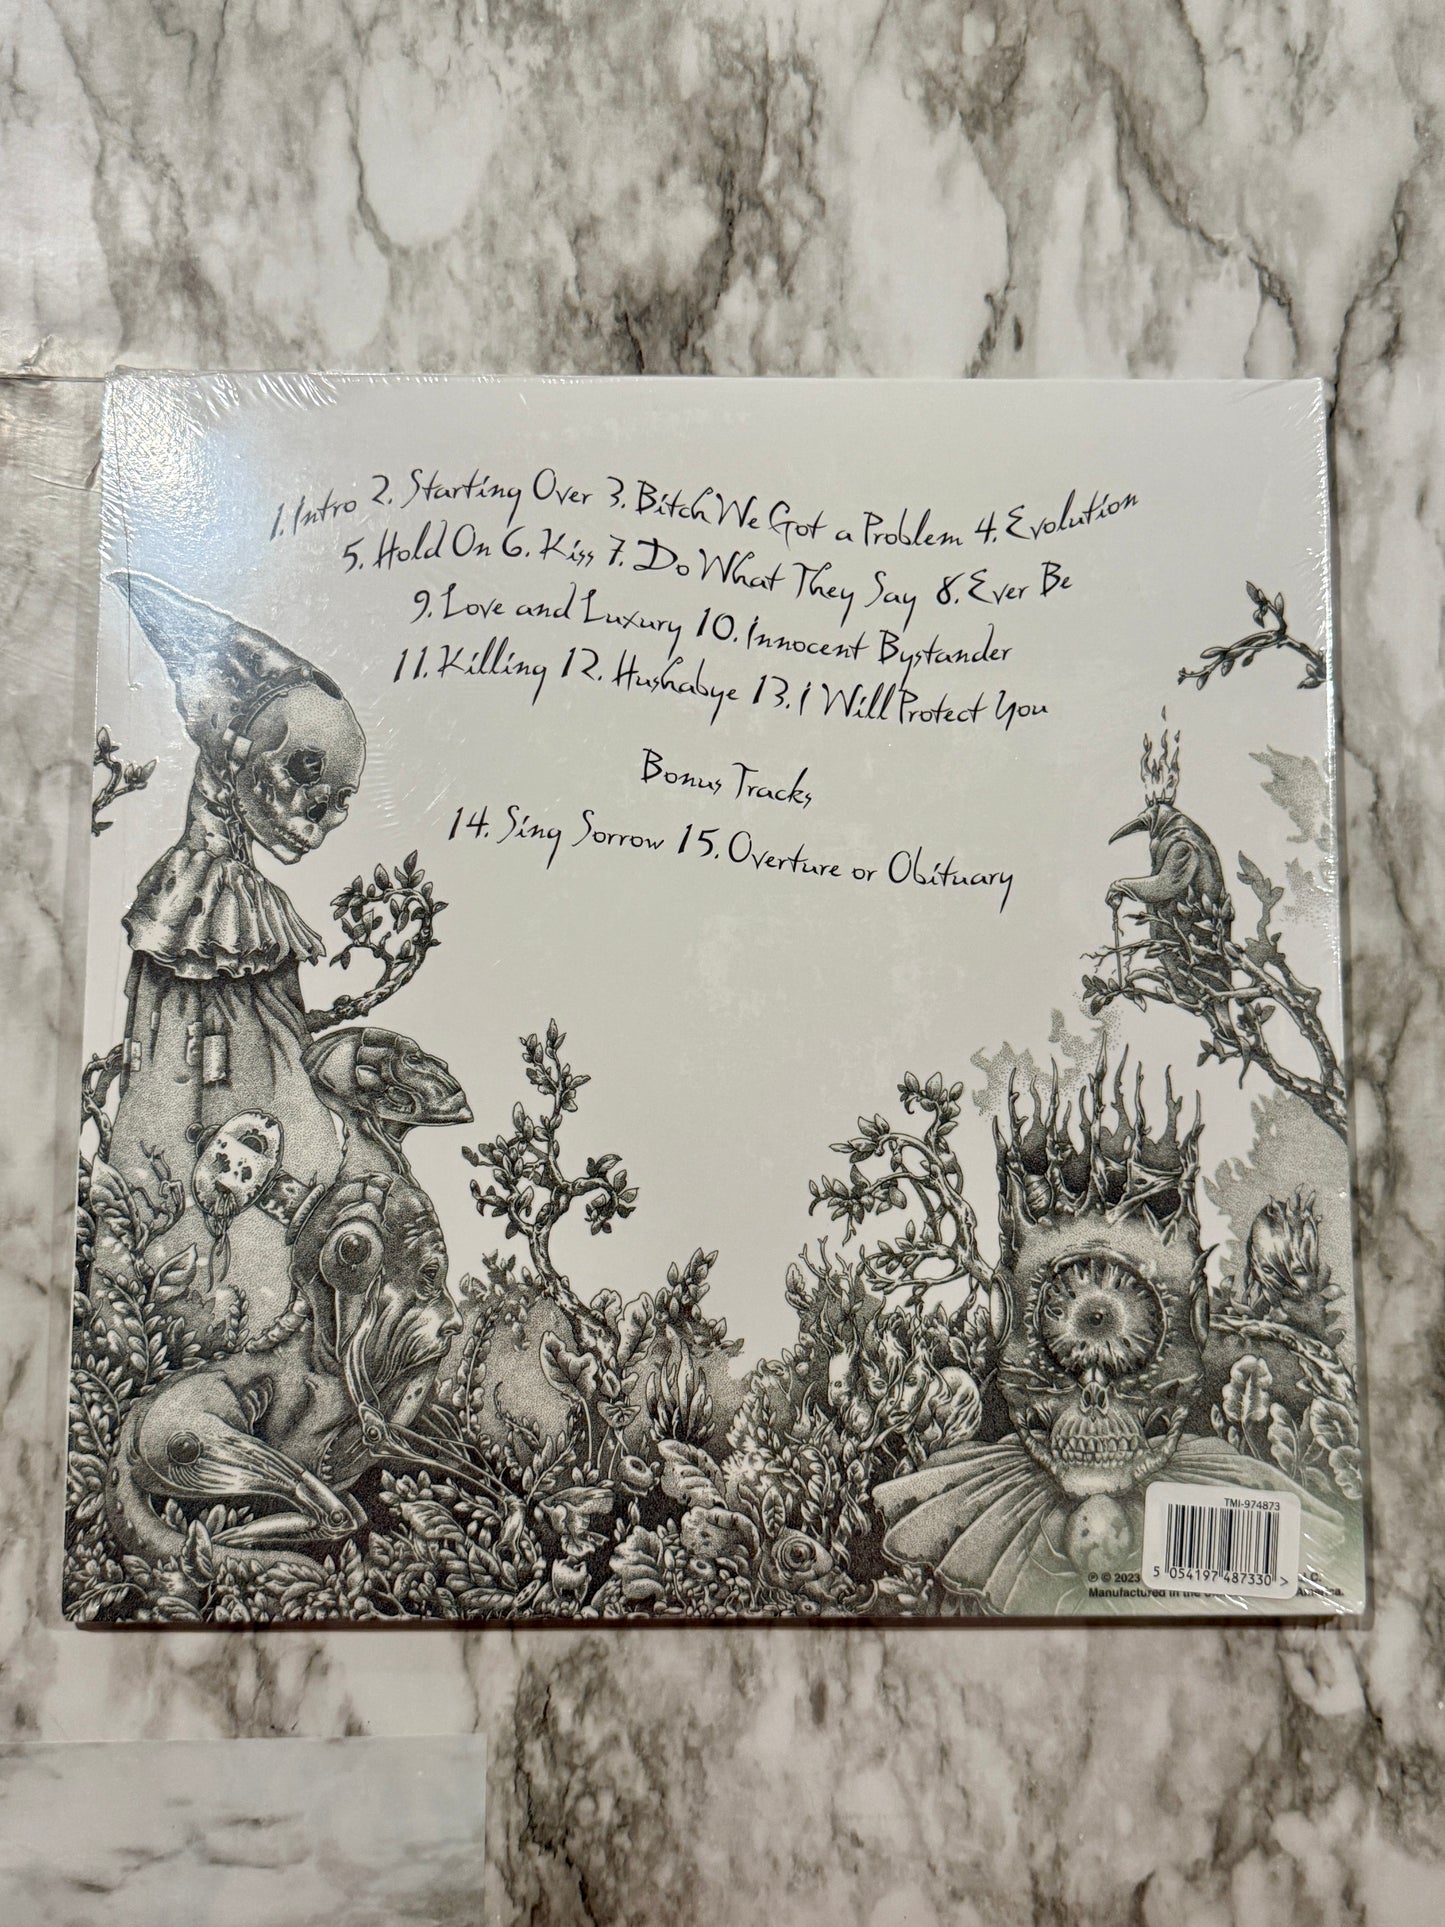 1. Intro 2. Starting Over 3. Bitch We Got a Problem 4. Evolution
5. Hold On 6. Kiss 7. Do What They Say 8. Ever Be
9. Love and Luxury 10. Innocent Bystander
11. Killing 12. Hushabye 13. I Will Protect You
Bonus Tracks
14. Sing Sorrow 15. Overture or Obituary
TMI-974873
5 054197 487330 >
℗ © 2023
Manufactured in the